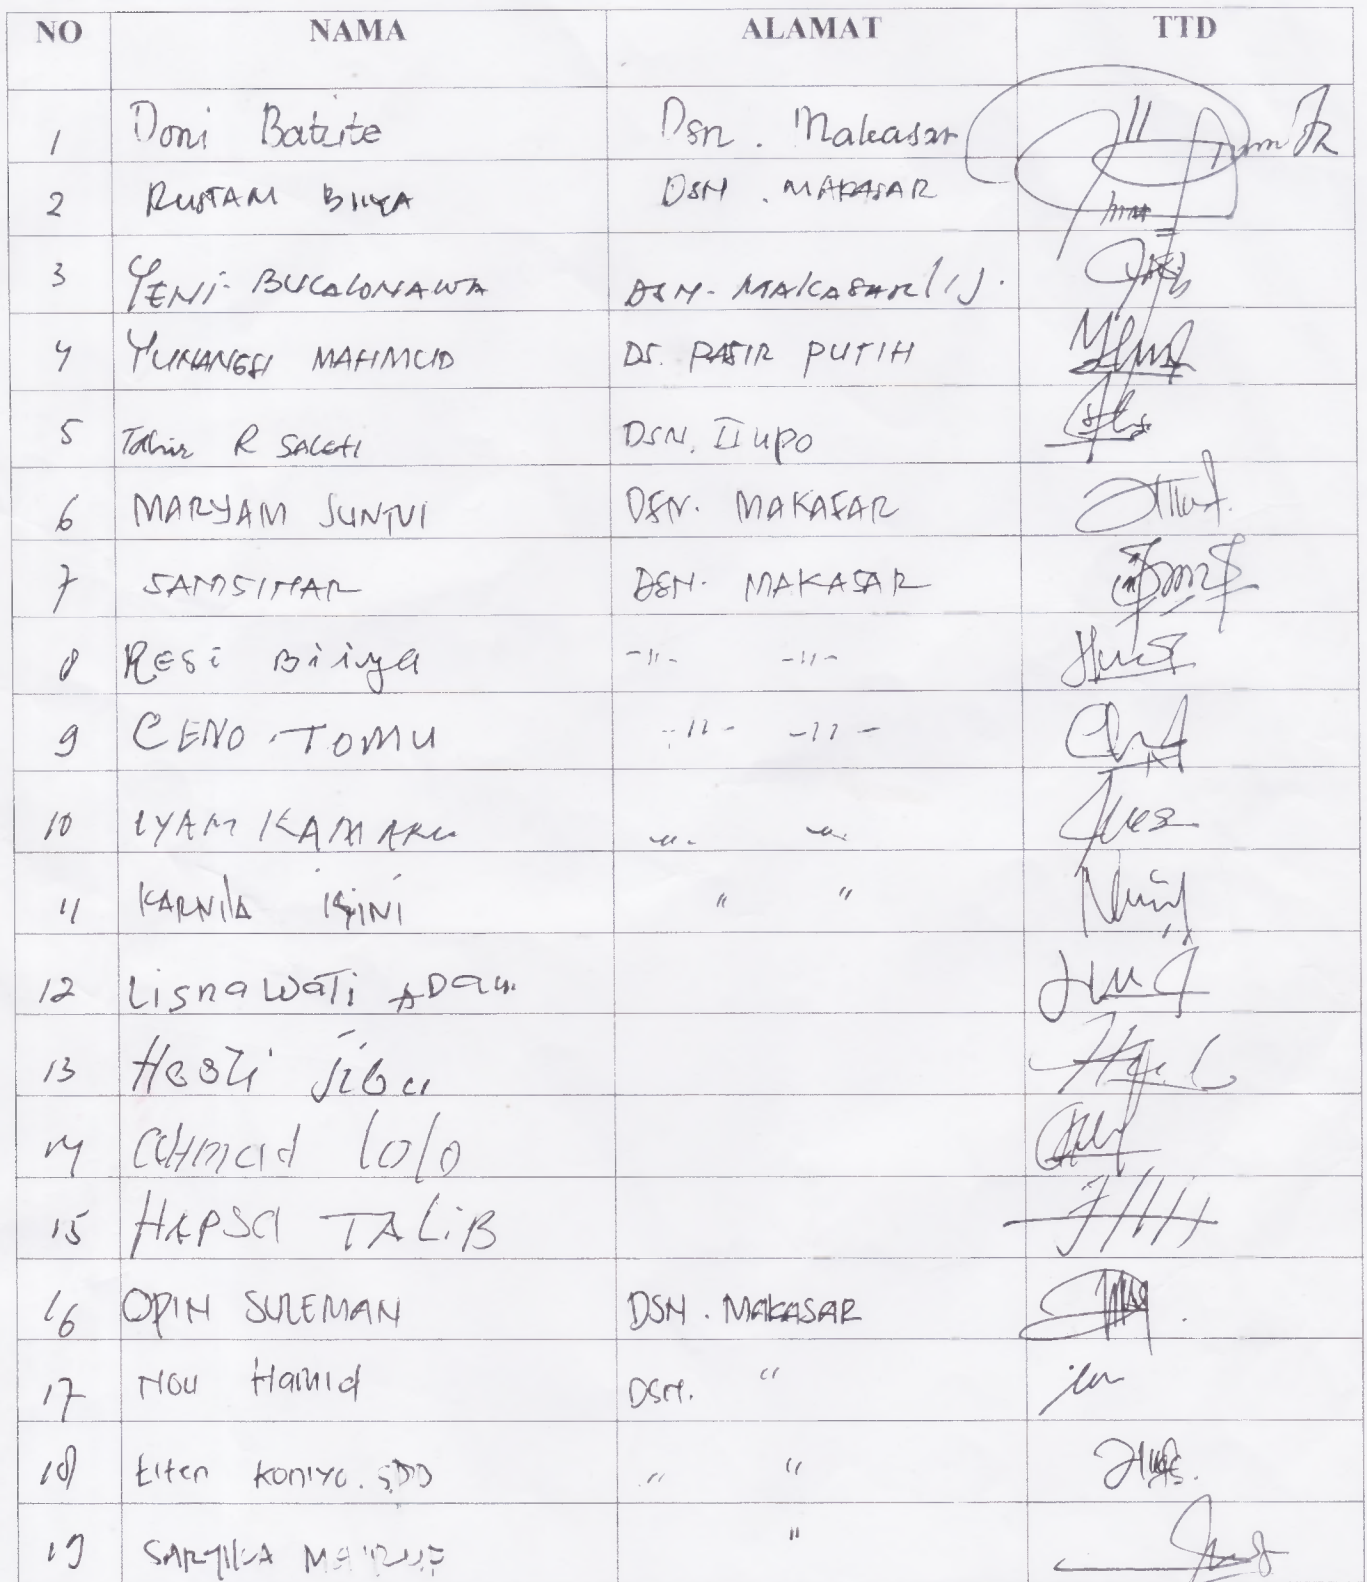 NO NAMA ALAMAT TTD
1 Doni Batute Dsn. Makasar
2 RUSTAM BIIYA DSN. MAKASAR
3 YENI BUCALONAWA DSN. MAKASSAR
4 YUNANGSI MAHMUD DS. PASIR PUTIH
5 Tahir R SALEH DSN. IIUPO
6 MARYAM SUNTUI DSN. MAKASAR
7 SAMSIMAR DSN. MAKASAR
8 Resi Biiya -"- -"-
9 CENO TOMU -"- -"-
10 IYAM KAMARU -"- -"-
11 KARNILA ISINI " "
12 Lisnawati ADam
13 Hasti Jibu
14 Ahmad lolo
15 HAPSA TALIB
16 OPIN SULEMAN DSN. MAKASAR
17 Nou Hamid DSN. "
18 Eiten Koniyo. " "
19 SARTIKA MA'RUF "